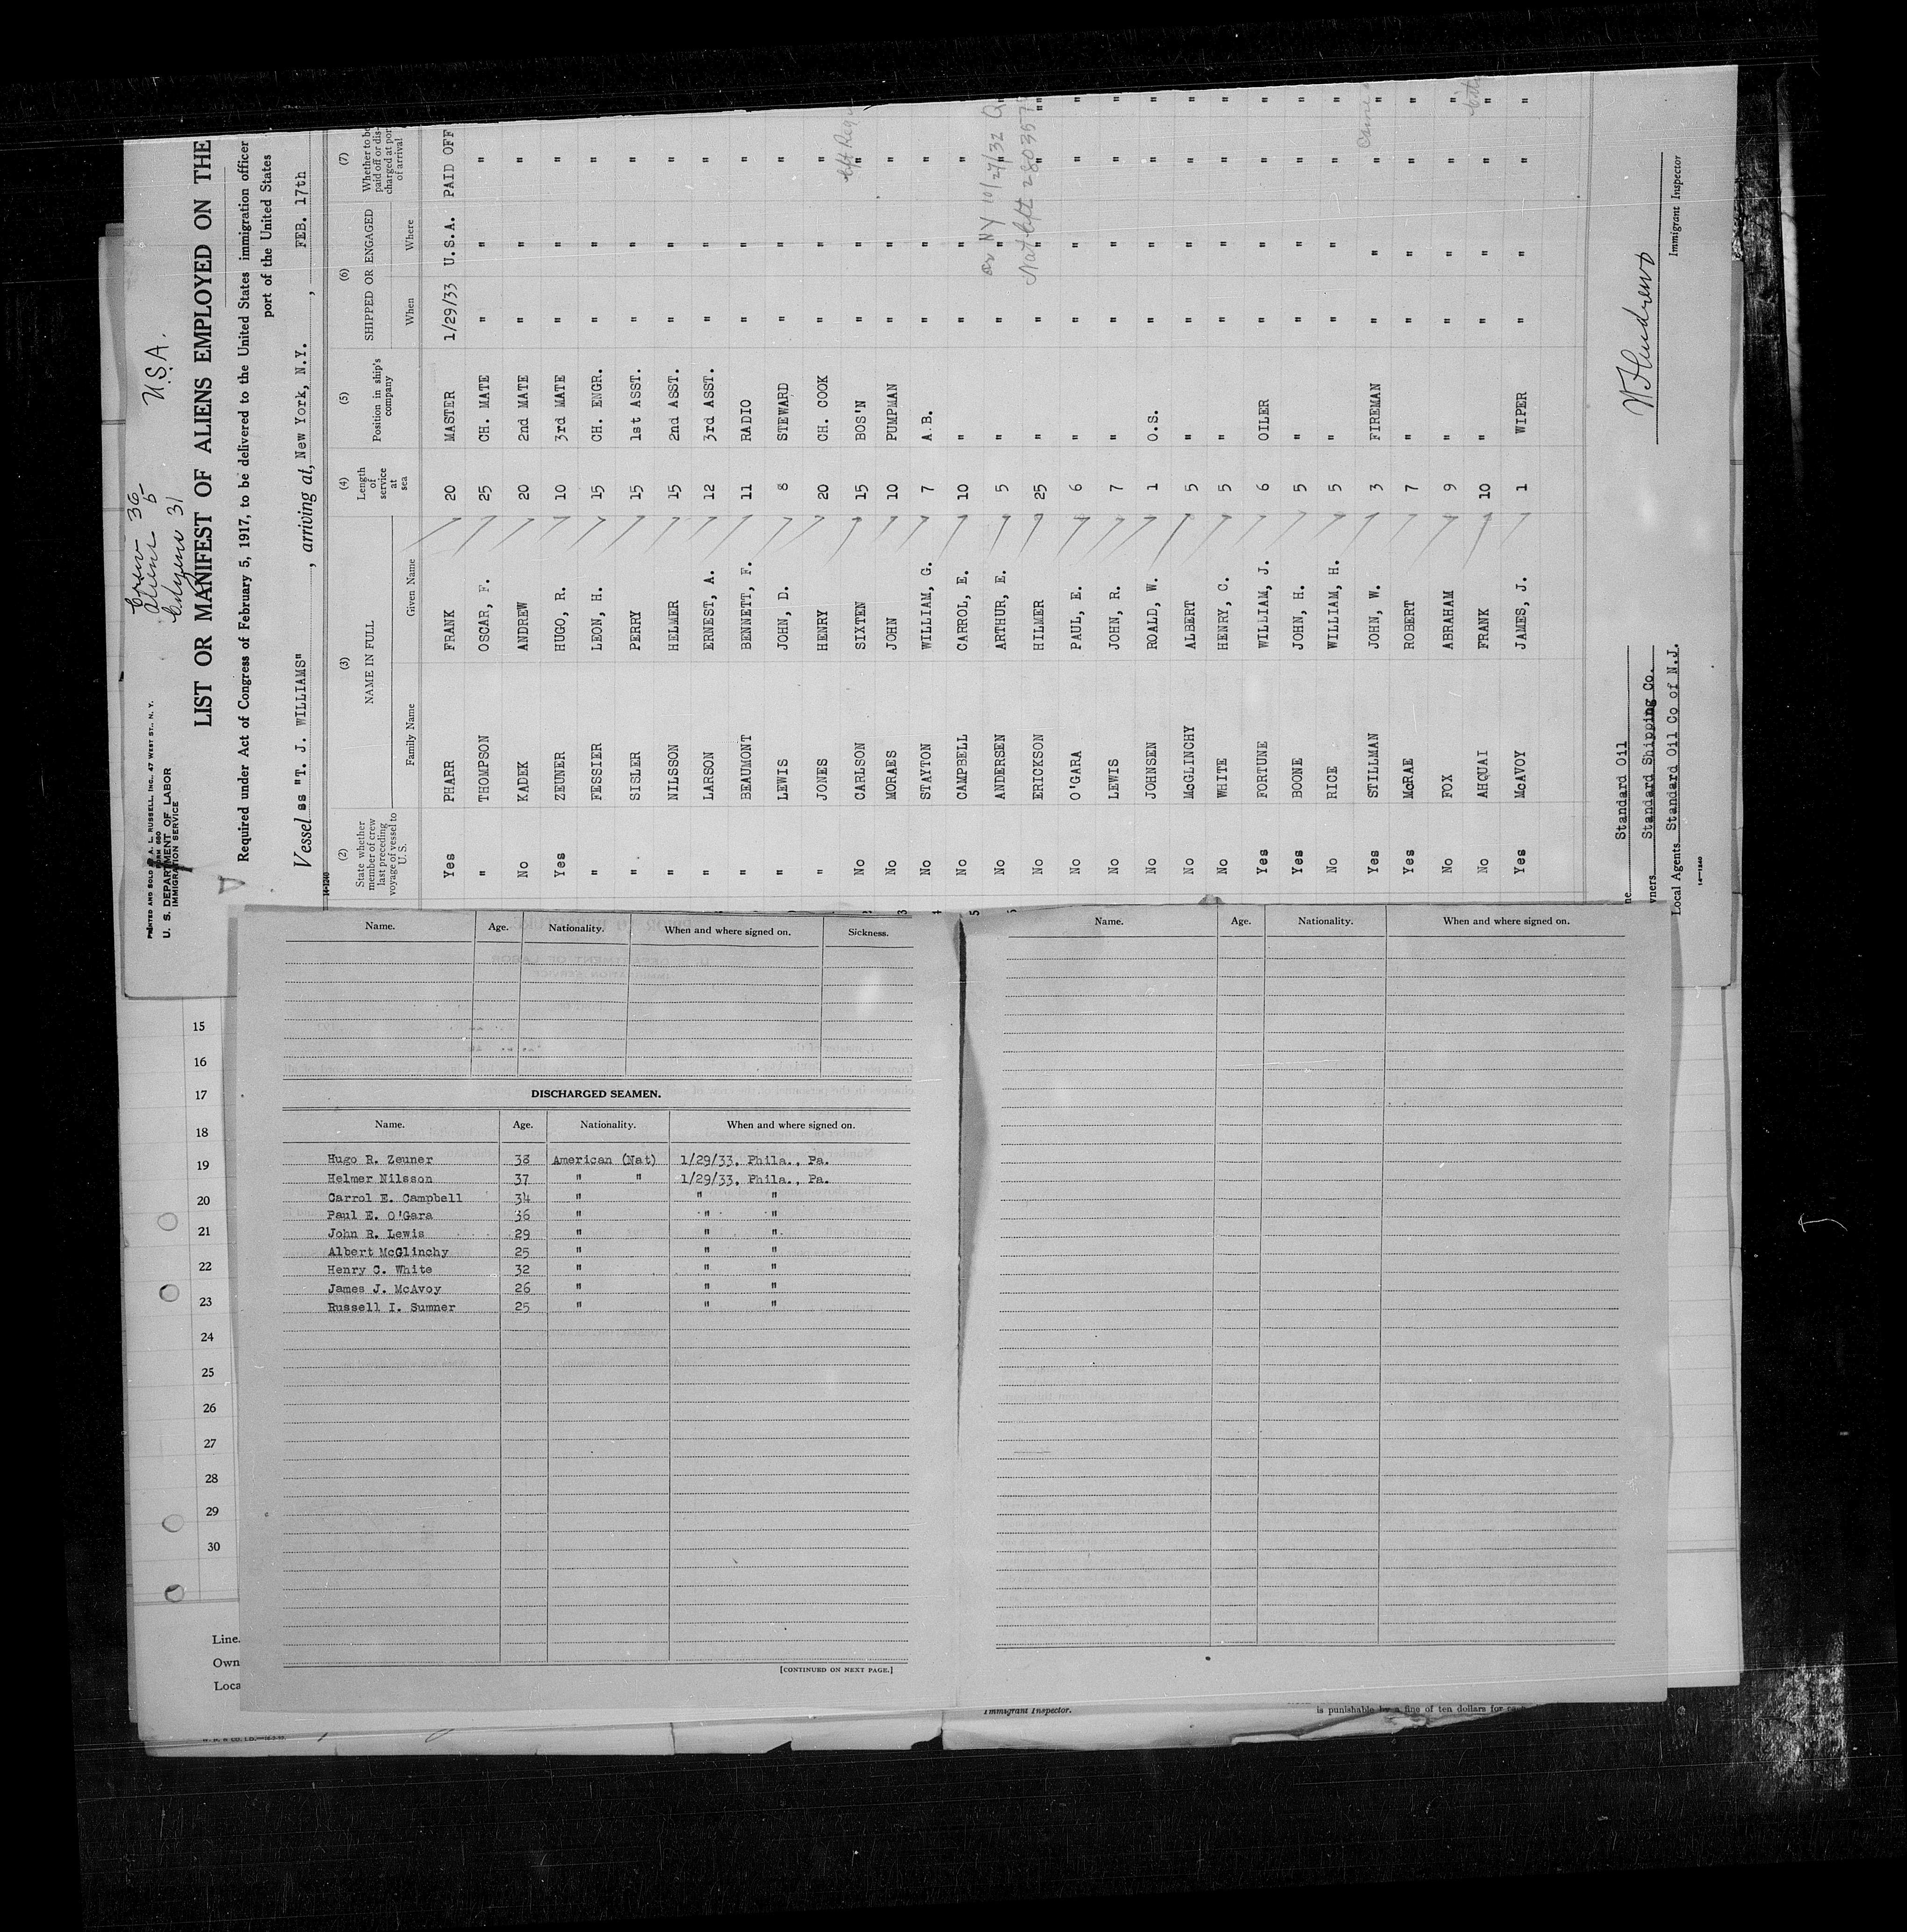 PRINTED AND SOLD BY A. L. RUSSELL, INC., 47 WEST ST., N. Y.
FORM 680
U. S. DEPARTMENT OF LABOR
IMMIGRATION SERVICE
Crew 36
Aliens 5
Citizens 31
U.S.A.
LIST OR MANIFEST OF ALIENS EMPLOYED ON THE
Required under Act of Congress of February 5, 1917, to be delivered to the United States immigration officer
port of the United States
Vessel ss "T. J. WILLIAMS", arriving at, New York, N.Y., FEB. 17th
14-1240
(2) (3) (4) (5) (6) (7)
State whether member of crew last preceding voyage of vessel to U. S. NAME IN FULL Length of service at sea Position in ship's company SHIPPED OR ENGAGED Whether to be paid off or discharged at port of arrival
Family Name Given Name When Where
Yes PHARR FRANK 20 MASTER 1/29/33 U.S.A. PAID OFF
" THOMPSON OSCAR, F. 25 CH. MATE " " "
No KADEK ANDREW 20 2nd MATE " " "
Yes ZEUNER HUGO, R. 10 3rd MATE " " "
" FESSIER LEON, H. 15 CH. ENGR. " " "
" SISLER PERRY 15 1st ASST. " " "
" NILSSON HELMER 15 2nd ASST. " " "
" LARSON ERNEST, A. 12 3rd ASST. " " "
" BEAUMONT BENNETT, F. 11 RADIO " " "
" LEWIS JOHN, D. 8 STEWARD " " "
" JONES HENRY 20 CH. COOK " " "
No CARLSON SIXTEN 15 BOS'N " " "
No MORAES JOHN 10 PUMPMAN " " "
No STAYTON WILLIAM, G. 7 A.B. " " "
No CAMPBELL CARROL, E. 10 " " " "
No ANDERSEN ARTHUR, E. 5 " " " " "
NY 10/27/32
No ERICKSON HILMER 25 " " " " "
Nat left
No O'GARA PAUL, E. 6 " " " " "
No LEWIS JOHN, R. 7 " " " " "
No JOHNSEN ROALD, W. 1 O.S. " " " "
No McGLINCHY ALBERT 5 " " " " "
No WHITE HENRY, C. 5 " " " " "
Yes FORTUNE WILLIAM, J. 6 OILER " " " "
Yes BOONE JOHN, H. 5 " " " " "
No RICE WILLIAM, H. 5 " " " " "
Yes STILLMAN JOHN, W. 3 FIREMAN " " " "
Yes McRAE ROBERT 7 " " " " "
No FOX ABRAHAM 9 " " " " "
No AHQUAI FRANK 10 " " " " "
Yes McAVOY JAMES, J. 1 WIPER " " " "
Immigrant Inspector
Standard Oil
Standard Shipping Co.
Local Agents Standard Oil Co of N.J.
14-1240
Name. Age. Nationality. When and where signed on. Sickness.
DISCHARGED SEAMEN.
Name. Age. Nationality. When and where signed on.
Hugo R. Zeuner 38 American (Nat) 1/29/33, Phila., Pa.
Helmer Nilsson 37 " " 1/29/33, Phila., Pa.
Carrol E. Campbell 34 " " "
Paul E. O'Gara 36 " " "
John R. Lewis 29 " " "
Albert McGlinchy 25 " " "
Henry C. White 32 " " "
James J. McAvoy 26 " " "
Russell I. Sumner 25 " " "
[CONTINUED ON NEXT PAGE.]
Name. Age. Nationality. When and where signed on.
15
16
17
18
19
20
21
22
23
24
25
26
27
28
29
30
Line
Own
Loca
Immigrant Inspector.
is punishable by a fine of ten dollars for